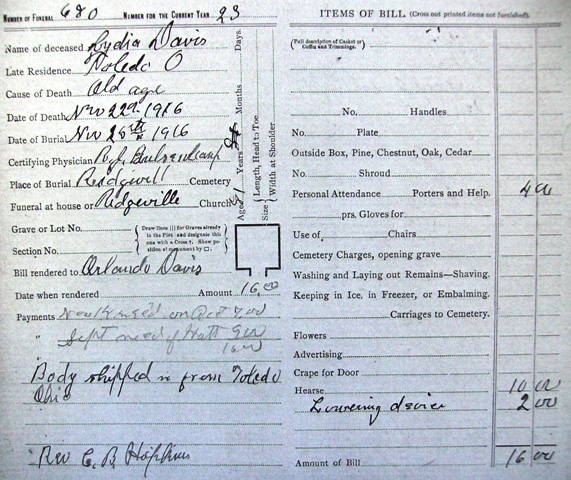 NUMBER OF FUNERAL 680 NUMBER FOR THE CURRENT YEAR 23
Name of deceased Lydia Davis
Late Residence Toledo O
Cause of Death Old age
Date of Death Nov 22nd 1916
Date of Burial Nov 25th 1916
Certifying Physician
Place of Burial Ridgeville Cemetery
Funeral at house or Ridgeville Church
Aged Years Months Days.
Size Length, Head to Toe
Width at Shoulder
Grave or Lot No.
Section No.
Draw lines ||| for Graves already
in the Plot and designate this
one with a Cross †. Show po-
sition of monument by □.
Bill rendered to Orlando Davis
Date when rendered Amount 16.00
Payments
" Sept 9 00
16 00
" Body shipped in from Toledo
Ohio
Rev C. B. Hopkins
ITEMS OF BILL. (Cross out printed items not furnished)
(Full description of Casket or
Coffin and Trimmings.
No. Handles
No. Plate
Outside Box, Pine, Chestnut, Oak, Cedar
No. Shroud
Personal Attendance Porters and Help. 4 00
prs. Gloves for
Use of Chairs
Cemetery Charges, opening grave
Washing and Laying out Remains—Shaving.
Keeping in Ice, in Freezer, or Embalming.
Carriages to Cemetery.
Flowers
Advertising
Crape for Door
Hearse 10 00
Lowering device 2 00
Amount of Bill 16 00